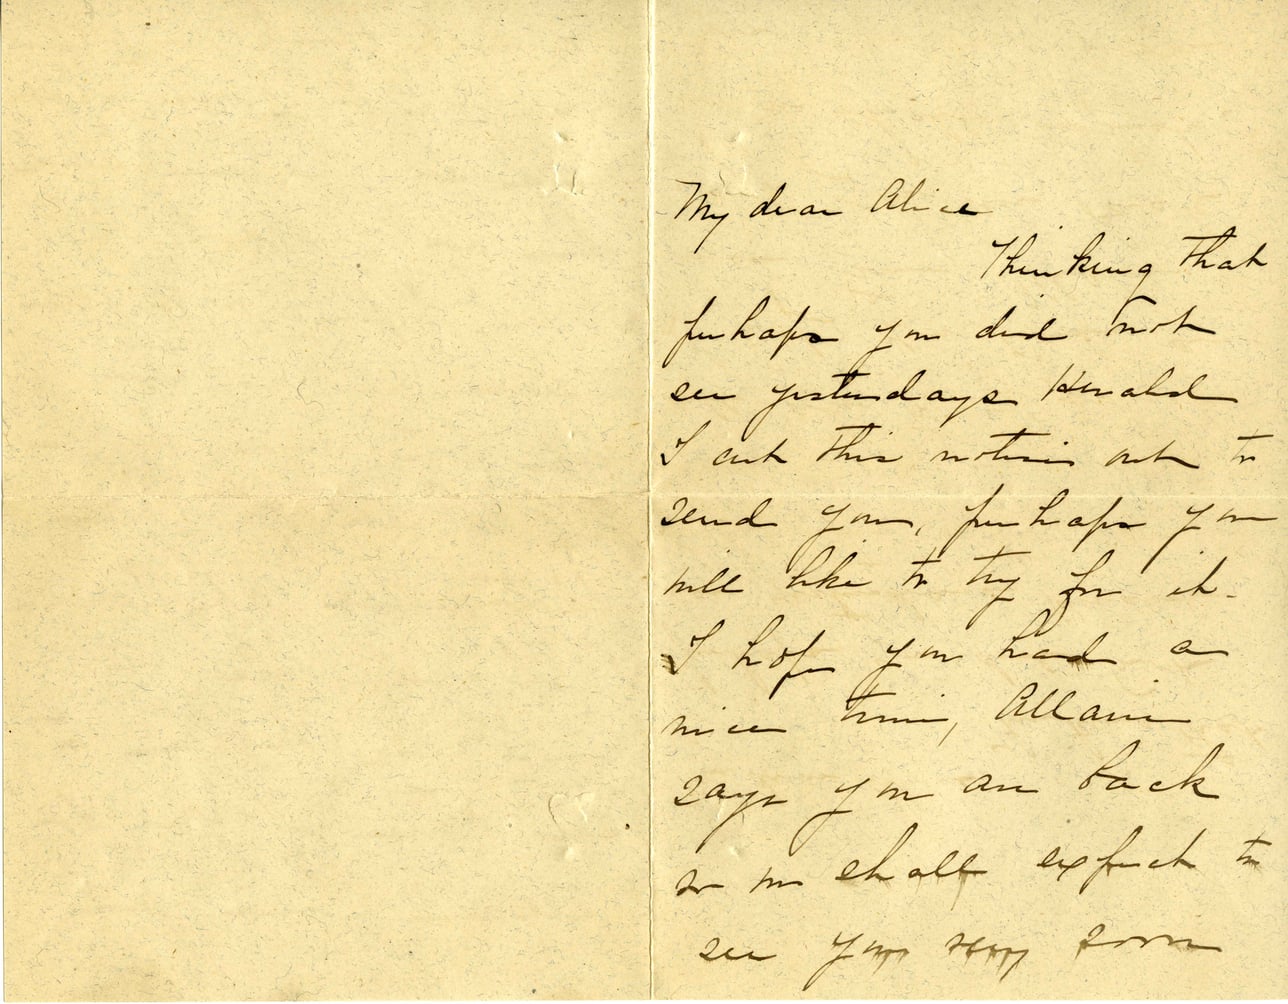 My dear Alice
Thinking that
perhaps you did not
see yesterdays Herald
I cut this notice out to
send you, perhaps you
will like to try for it.
I hope you had a
nice time, Allaire
says you are back
so we shall expect to
see you very soon